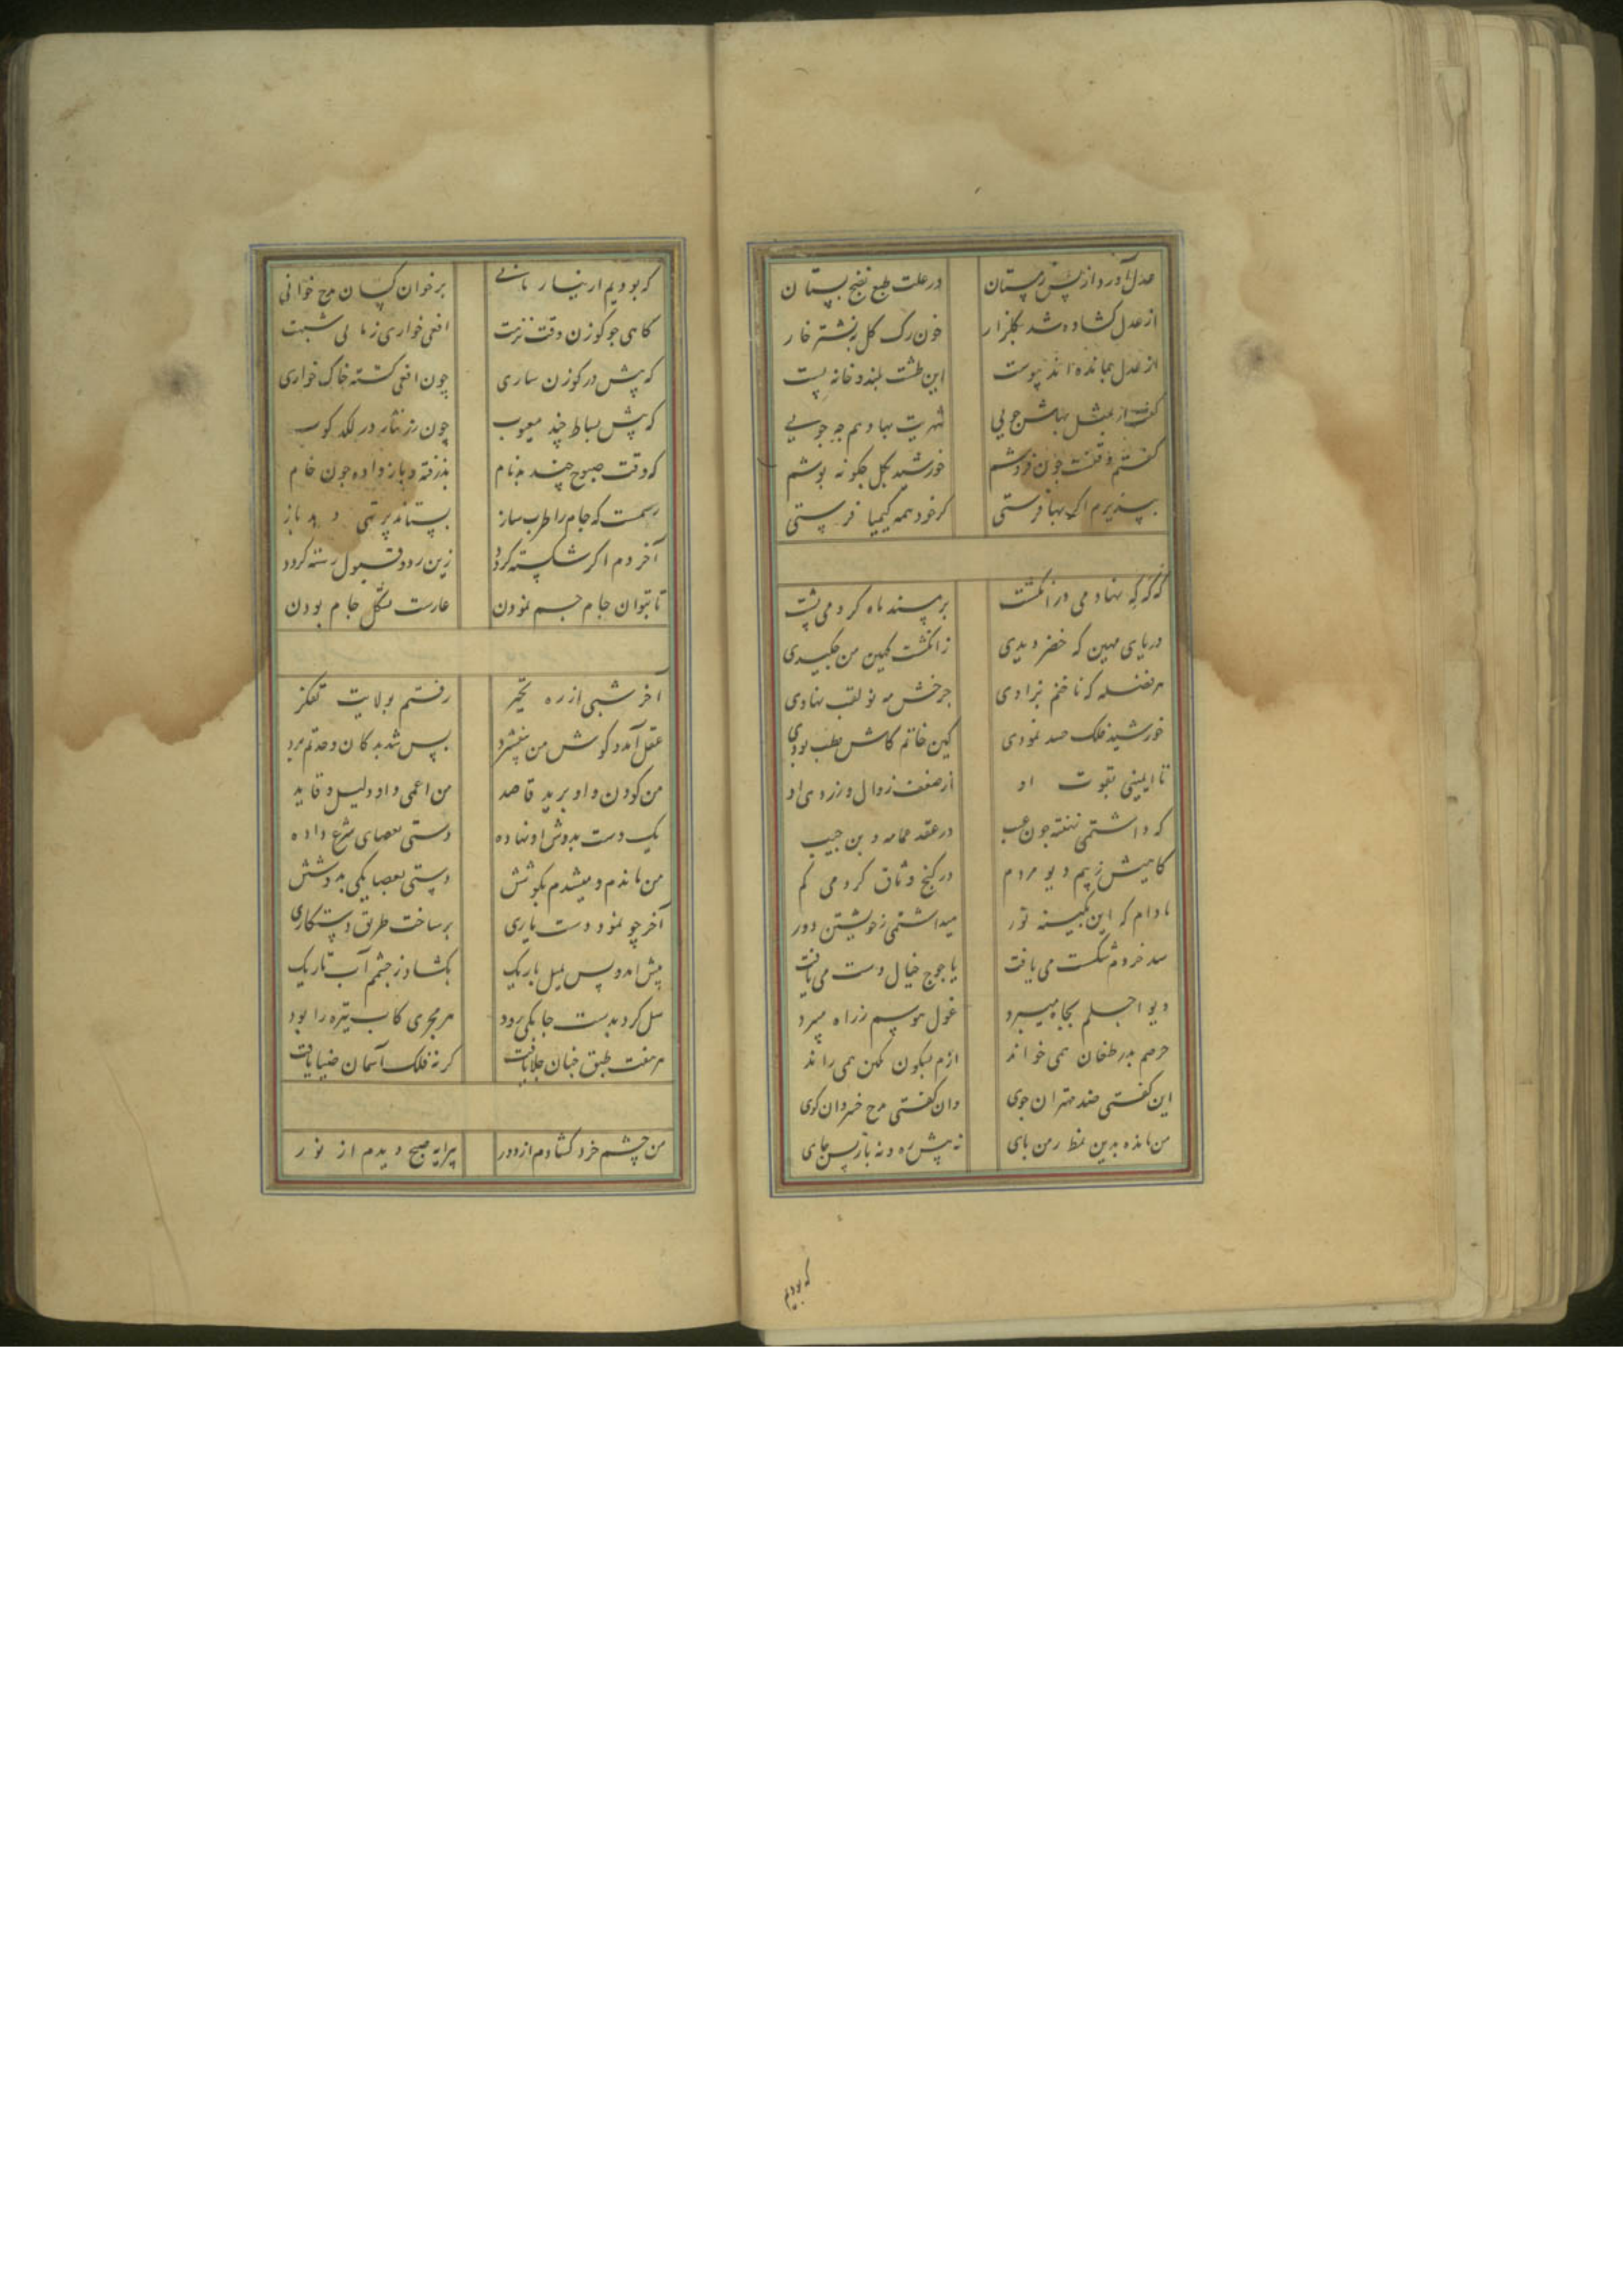 عدل آورد از پس زمستان در علت طبع نضج بستان
از عدل کشاده شد بکلزار خون رک کل بنشتر خار
از عدل بمانده‌اند پیوست این طشت بلند و خانه پست
گفت از بمثل بهاش جویی بها دهم چه جویی
گفتم وقتست چون فروشم خورشید بکل چکونه پوشم
بپذیرم اگر بها فرستی کر خود همه کیمیا فرستی
که که که نهادمی در انکشت بر پسند ماه کردمی پشت
دریای مهین که خضر دیدی ز انکشت کهین من چکیدی
هر فضله که ناخنم بزادی چرخش مه نو لقب نهادی
خورشید فلک حسد نمودی کین خاتم کاش بطب بودی
تا ایمنی بقوت او از ضعف زوال و زردی او
که داشتمی نهفته چون عیب در عقد عمامه و بن جیب
کاهیش ز بیم دیو مردم در کنج وثاق کردمی کم
مادام که این نکینه نور میداشتمی ز خویشتن دور
سد خردم شکست می یافت یاجوج خیال دست می یافت
دیو اجلم بجاه میبرد غول هوسم ز راه میبرد
حرصم بدر طغان همی خواند ازم بسکون کهن همی راند
این کفتی صدر مهتران جوی وان کفتی مدح خسروان کوی
من مانده بدین نمط رمن بای نه پیش ره و نه باز پس جای
که بودیم
که بودیم از نیاز نانی بر خوان کسان مدح خوانی
کاهی چو کوزن وقت نزهت افعی خواری ز شبهت
که پیش در کوزن ساری چون افعی کشته خاک خواری
که پیش بساط چند معیوب چون زر نثار در لکد کوب
که وقت صبوح چند بدنام بذرفته و باز داده چون جام
رسمست که جام را طرب ساز بستاند پر تهی دهد باز
آخر دم اکر شکسته کردد زین رد و قبول رسته کردد
تا بتوان جام جم نمودن عارست بشکل جام بودن
آخر شبی از ره تحیر رفتم بولایت تفکر
عقل آمد و کوش من بیفشرد پس شد بدکان وحدتم برد
من کودن و او برید قاصد من اعمی و او دلیل و قاید
یک دست بدوش او نهاده دستی بعصای شرع داده
من ماندم و میشدم بکوشش دستی بعصا یکی بدوشش
آخر چو نمود دست یاری بر ساخت طریق دستکاری
پیش آمد و پس بمیل باریک بکشاد ز چشم آب تاریک
سل کرد بدست چابکی زود هر مجری کاب تیره را بود
هر هفت طبق چنان جلا یافت کز نه فلک آسمان ضیا یافت
من چشم خرد کشادم از دور پیرایه صبح دیدم از نور